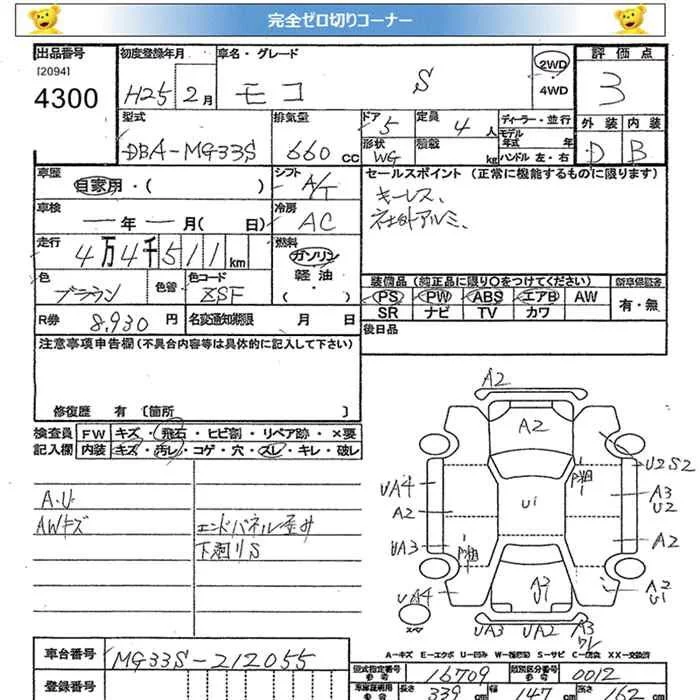 完全ゼロ切りコーナー
出品番号 初度登録年月 車名・グレード 2WD 評価点
[2094] H25 2月 モコ S 4WD 3
4300
型式 排気量 ドア 5 定員 4人 ディーラー・並行 外装 内装
DBA-MG33S 660cc 形状 WG 積載 kg モデル年式 年 D B
ハンドル 左・右
車歴 自家用・( ) シフト A/T セールスポイント(正常に機能するものに限ります)
車検 ―年 ―月( 日) 冷房 AC キーレス、
社外アルミ、
走行 4万4千511km 燃料 ガソリン
軽油
( )
色 ブラウン 色替 色コード ZSF
装備品(純正品に限り○をつけてください) 新車保証書
PS PW ABS エアB AW 有・無
SR ナビ TV カワ
R券 8,930円 名変通知期限 月 日 後日品
注意事項申告欄(不具合内容等は具体的に記入して下さい)
修復歴 有 [箇所 ]
検査員 FW キズ・飛石・ヒビ割・リペア跡・×要
記入欄 内装 キズ・汚レ・コゲ・穴・スレ・キレ・破レ
A.U
AWキズ エンドパネル歪み
下廻りS
A2
A2
U2S2
UA4 A3
U2
A2 U1
UA3 A2
A3
U1
A2
U1
UA4
スペア
UA3 UA2 A3
ワレ
A-キズ E-エクボ U-凹み W-補修跡 S-サビ C-腐食 XX-交換済
車台番号 MG33S-212055
型式指定番号 16709 類別区分番号 0012
参考 参考
登録番号 長さ 339cm 幅 147cm 高さ 162cm